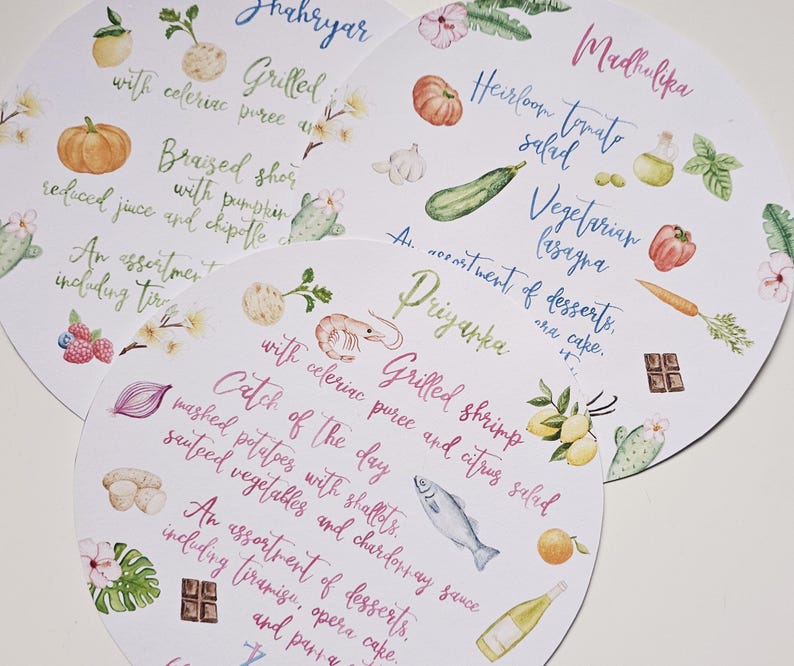 Shahryar
Grilled
with celeriac puree
Braised
with pumpkin
reduced juice and chipotle
An assortment
including
Madhulika
Heirloom tomato
salad
Vegetarian
lasagna
An assortment of desserts,
cake,
Priyanka
Grilled shrimp
with celeriac puree and citrus salad
Catch of the day
mashed potatoes with shallots,
sauteed vegetables and chardonnay sauce
An assortment of desserts,
including tiramisu, opera cake,
and